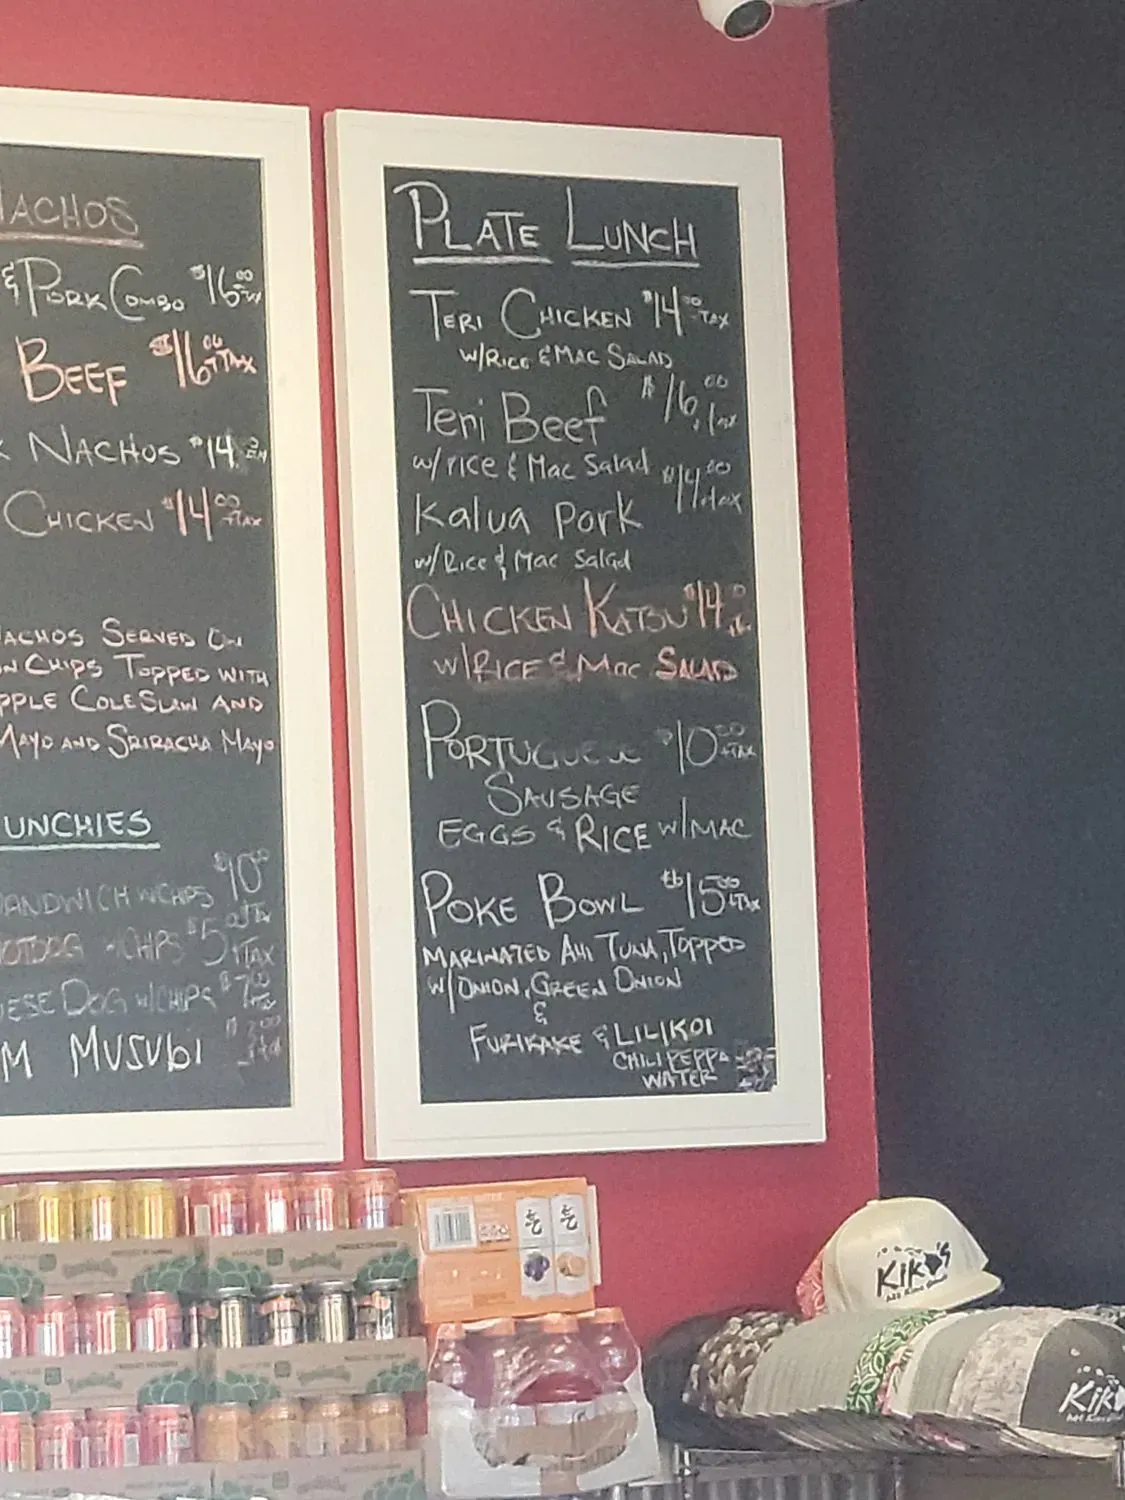 NACHOS
& PORK COMBO $16.00 +TAX
BEEF $16.00 +TAX
NACHOS $14
CHICKEN $14.00 +TAX
NACHOS SERVED ON
CHIPS TOPPED WITH
COLESLAW AND
MAYO AND SRIRACHA MAYO
UNCHIES
SANDWICH W/CHIPS $10.00
HOTDOG W/CHIPS $5.00 +TAX
DOG W/CHIPS $7.00
MUSUBI
PLATE LUNCH
TERI CHICKEN $14.00 +TAX
W/RICE & MAC SALAD
Teri Beef $16.00 +Tax
w/rice & Mac Salad
Kalua Pork $14.00 +Tax
w/Rice & Mac Salad
CHICKEN KATSU $14
W/RICE & Mac SALAD
PORTUGUESE $10.00 +TAX
SAUSAGE
EGGS & RICE W/MAC
POKE BOWL $15.00 +TAX
MARINATED AHI TUNA, TOPPED
W/ONION, GREEN ONION
&
FURIKAKE & LILIKOI
CHILI PEPPA
WATER
KIKO'S
KIKO